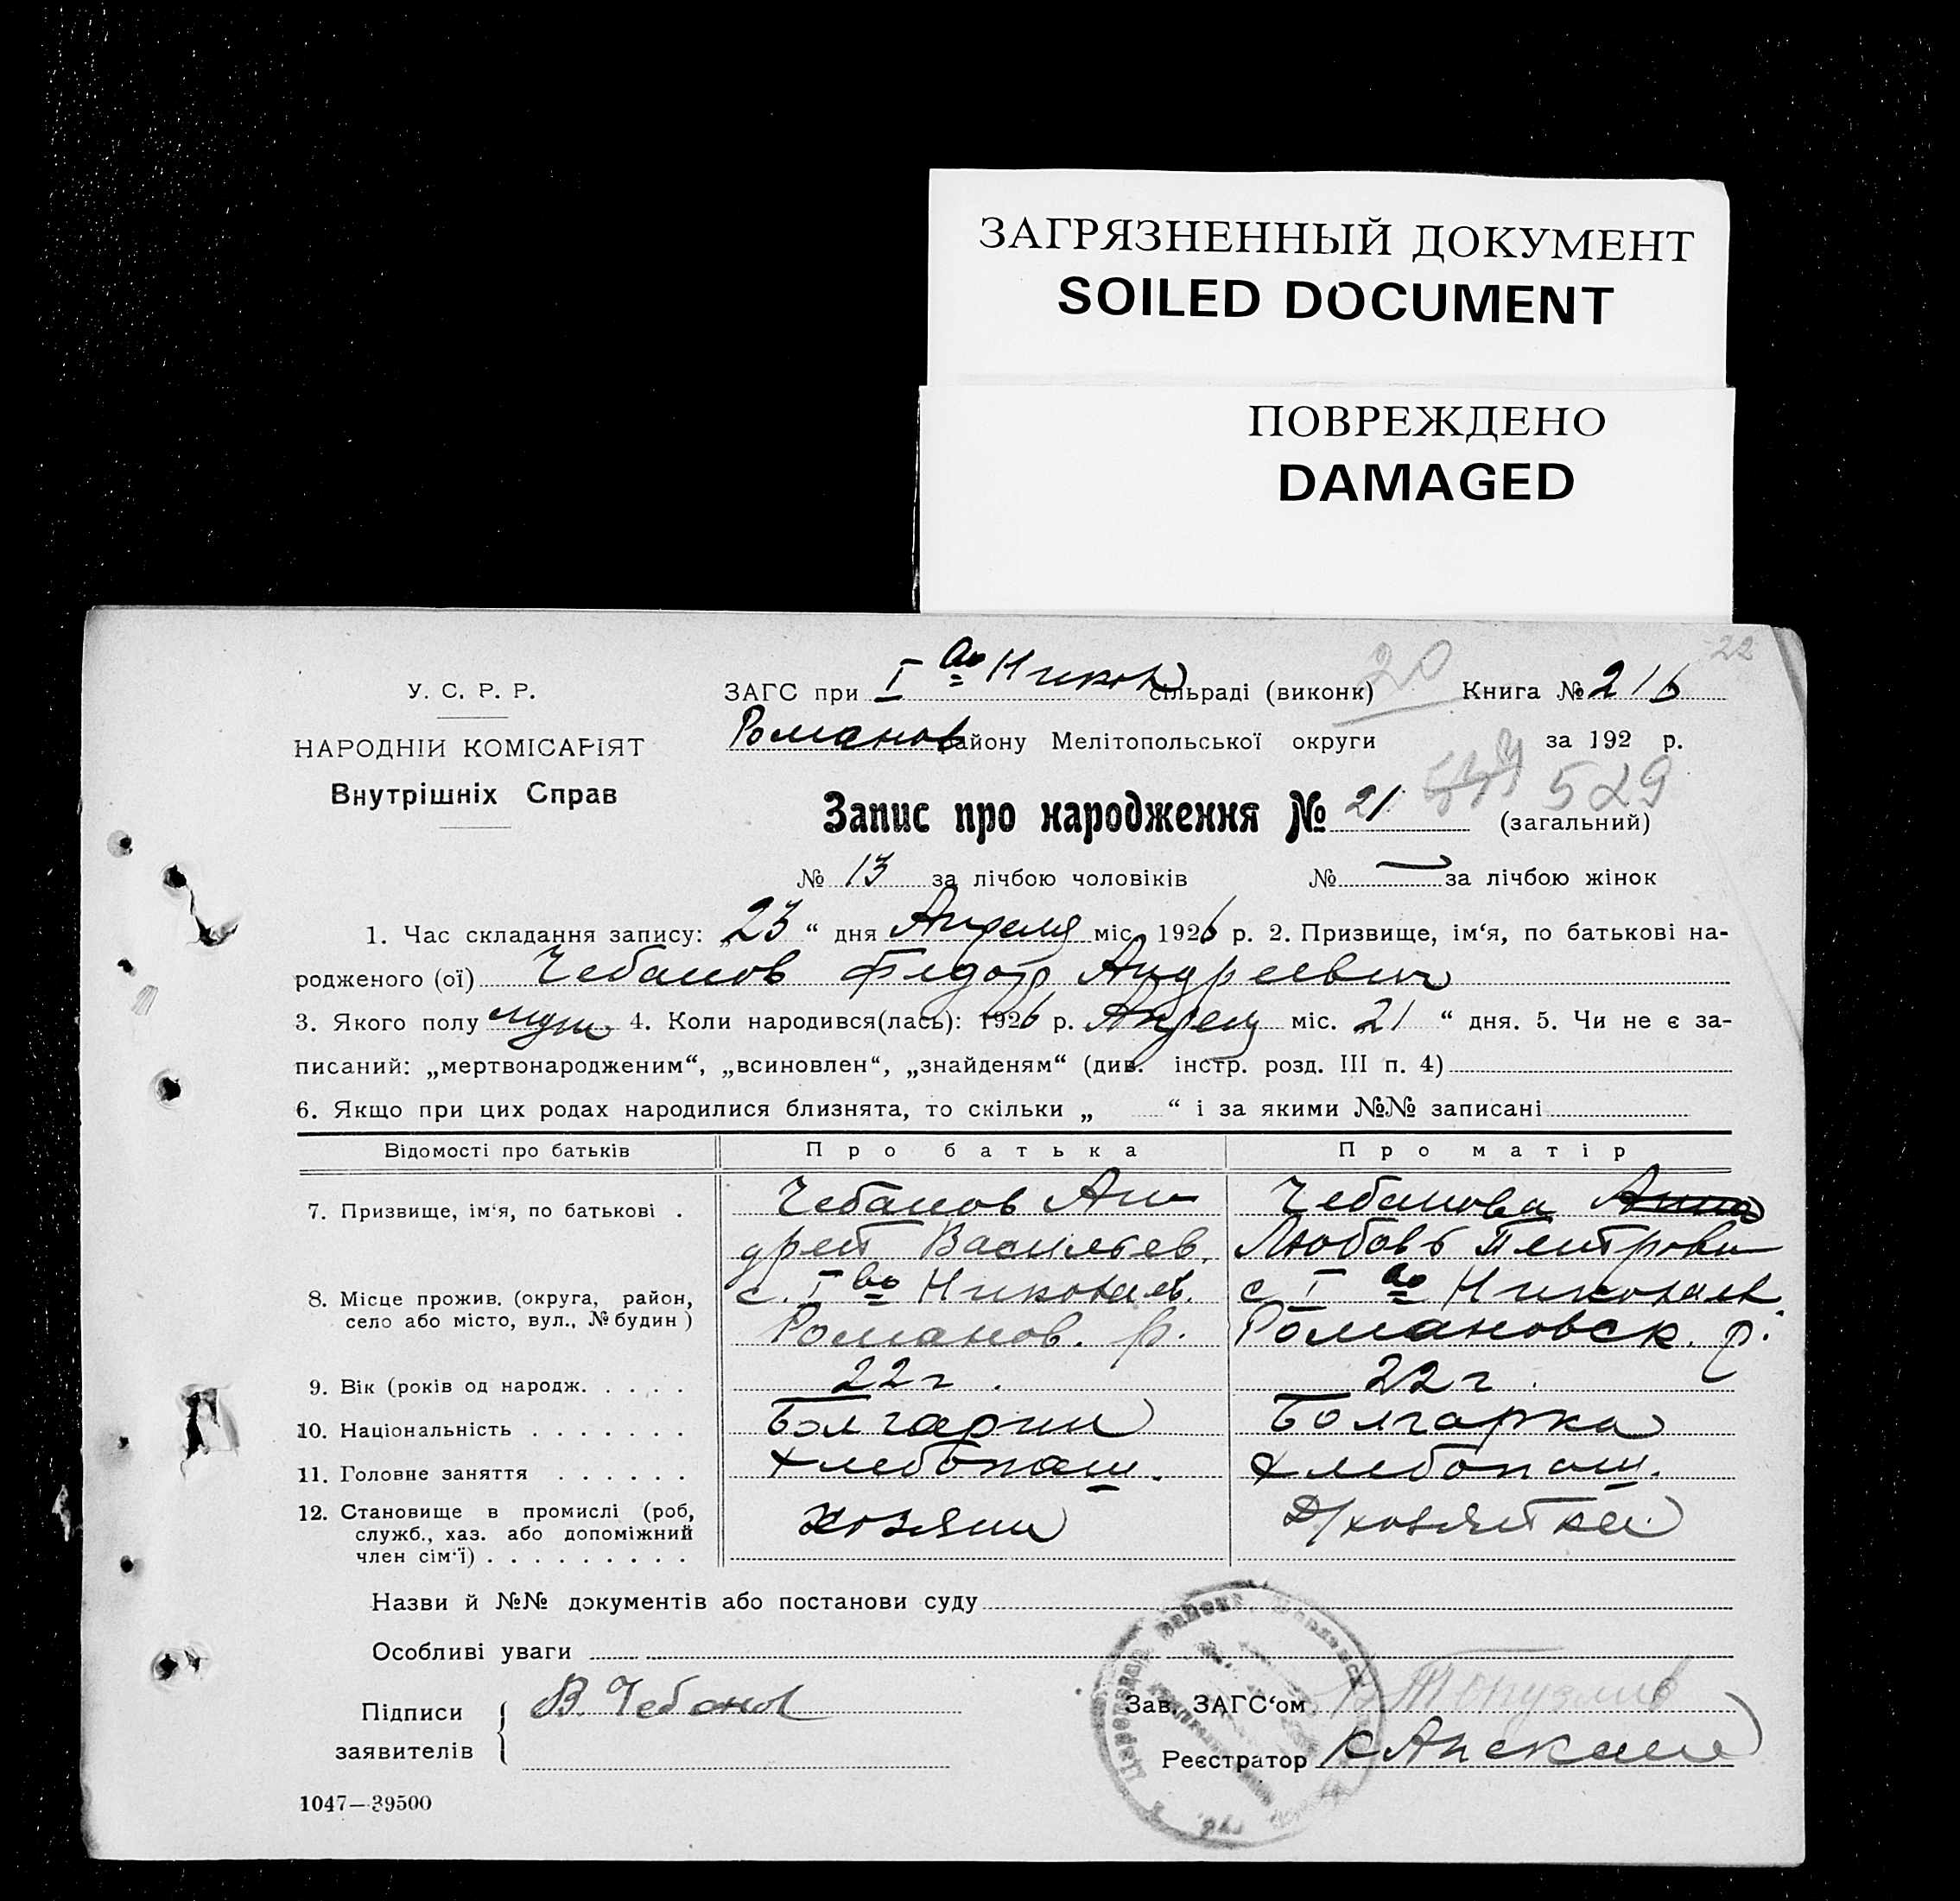 ЗАГРЯЗНЕННЫЙ ДОКУМЕНТ
SOILED DOCUMENT
ПОВРЕЖДЕНО
DAMAGED
22
У. С. Р. Р.
НАРОДНІЙ КОМІСАРІЯТ
Внутрішніх Справ
ЗАГС при I ао Никол сільраді (виконк) 20 Книга № 216
Романов району Мелітопольської округи за 192 р.
529
Запис про народження № 21 (загальний)
№ 13 за лічбою чоловіків № — за лічбою жінок
1. Час складання запису: „23“ дня Апреля міс. 1926 р. 2. Призвище, ім‘я, по батькові на-
родженого (ої) Чебанов Федор Андреевич
3. Якого полу муж 4. Коли народився(лась): 1926 р. Апрель міс. „21“ дня. 5. Чи не є за-
писаний: „мертвонародженим“, „всиновлен“, „знайденям“ (див. інстр. розд. III п. 4)
6. Якщо при цих родах народилися близнята, то скільки „ “ і за якими №№ записані
Відомості про батьків Про батька Про матір
7. Призвище, ім‘я, по батькові . Чебанов Ан- Чебанова Анна
дрей Васильев. Любовь Петровн
8. Місце прожив. (округа, район, село або місто, вул., № будин) с. I во Николаев. с I ао Николаев.
Романов. р. Романовск. р.
9. Вік (років од народж. . . . . 22 г. 22 г.
10. Національність . . . . . . . Болгарин Болгарка
11. Головне заняття . . . . . . Хлебопаш. Хлебопаш.
12. Становище в промислі (роб, служб., хаз. або допоміжний член сім‘ї) . . . . . . . . . Хозяин Д/хозяйка
Назви й №№ документів або постанови суду
Особливі уваги
Підписи заявителів В. Чебанов
Зав. ЗАГС‘ом
Реєстратор
1047—39500